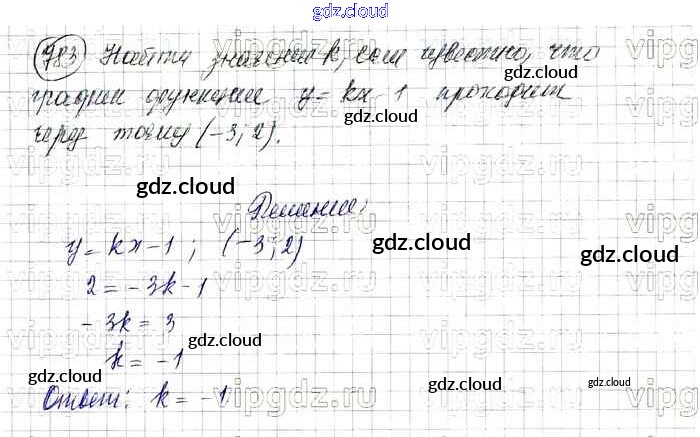 gdz.cloud
783 Найти значения k, если известно, что
график функции y = kx - 1 проходит
через точку (-3; 2).
gdz.cloud
gdz.cloud
gdz.cloud
Решение:
y = kx - 1 ; (-3; 2)
gdz.cloud
gdz.cloud
2 = -3k - 1
-3k = 3
gdz.cloud
k = -1
gdz.cloud
gdz.cloud
gdz.cloud
Ответ: k = -1
vipgdz.ru